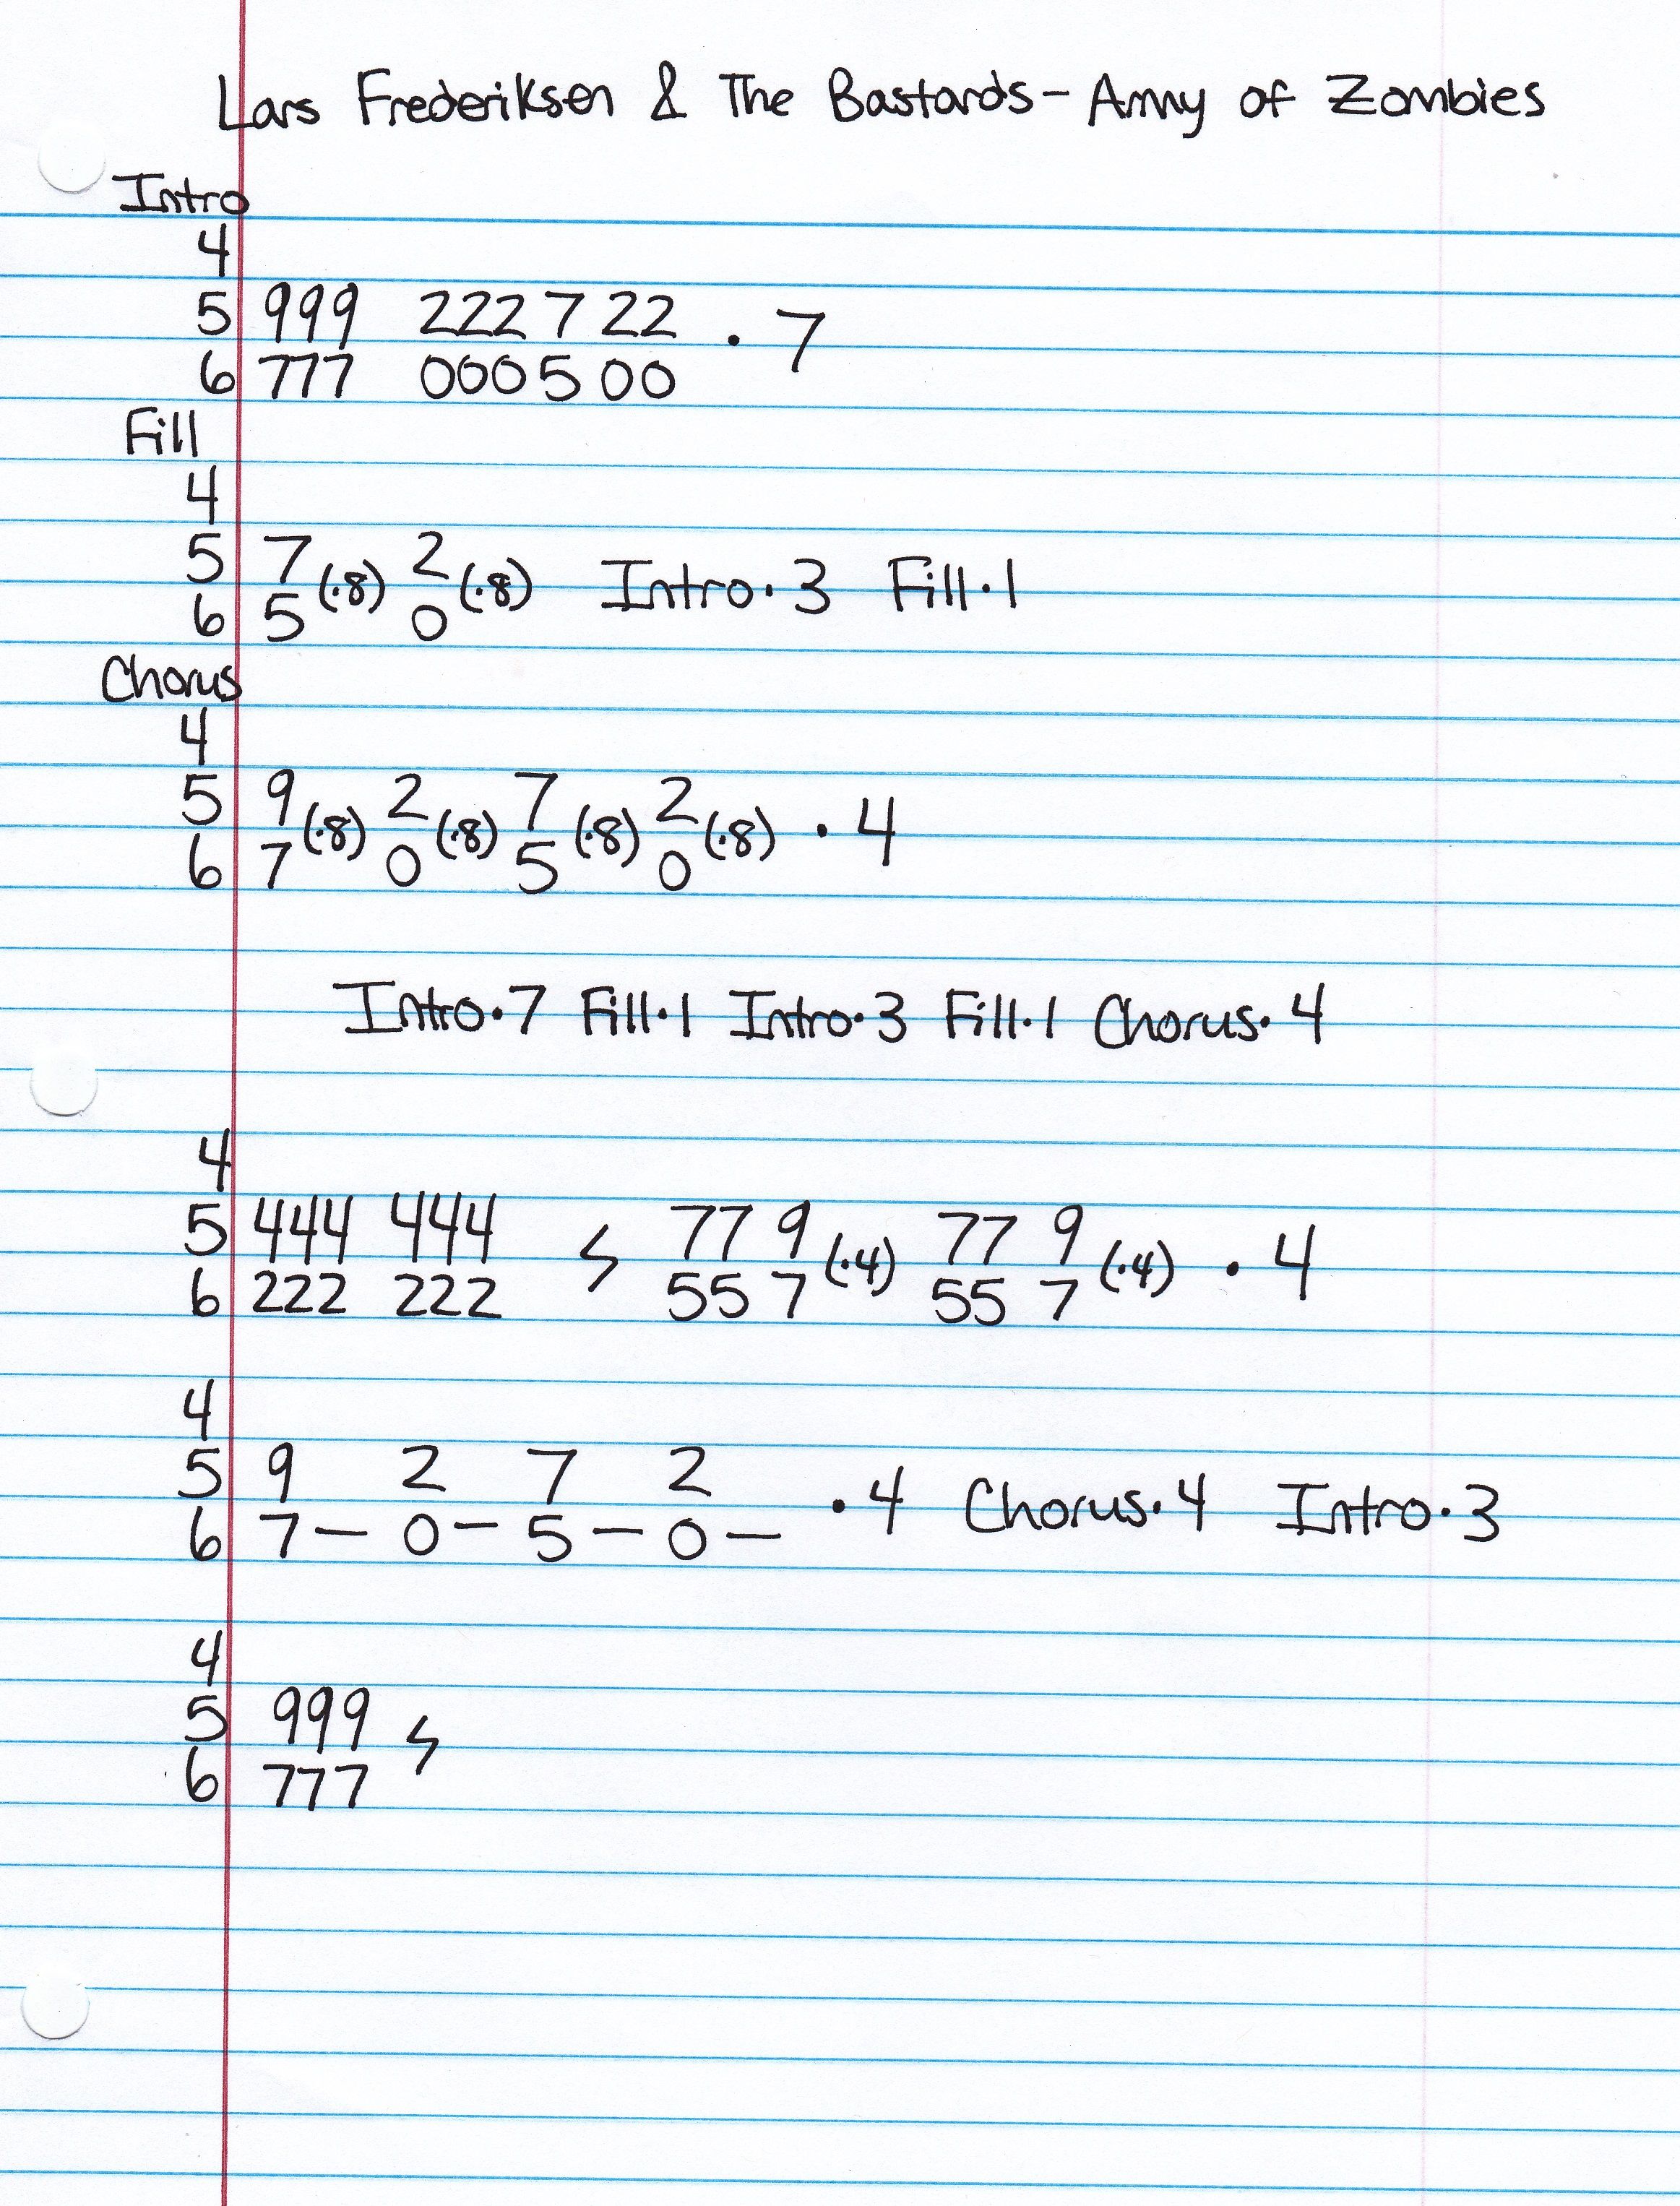 Lars Frederiksen & The Bastards - Army of Zombies
Intro
4
5 999 222 7 22 · 7
6 777 000 5 00
Fill
4
5 7 (·8) 2 (·8) Intro·3 Fill·1
6 5 0
Chorus
4
5 9 (·8) 2 (·8) 7 (·8) 2 (·8) · 4
6 7 0 5 0
Intro·7 Fill·1 Intro·3 Fill·1 Chorus·4
4
5 444 444 77 9 (·4) 77 9 (·4) · 4
6 222 222 55 7 55 7
4
5 9 2 7 2 ·4 Chorus·4 Intro·3
6 7 — 0 — 5 — 0 —
4
5 999
6 777